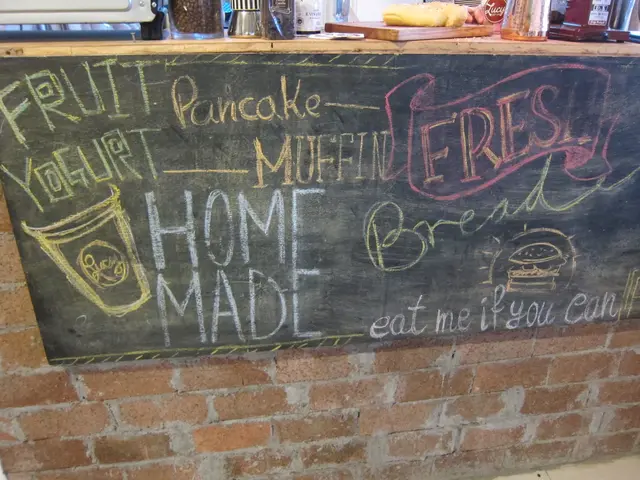 FRUIT
Pancake
FRESH
YOGURT
MUFFIN
HOME
MADE
Bread
Lucy
eat me if you can!!!